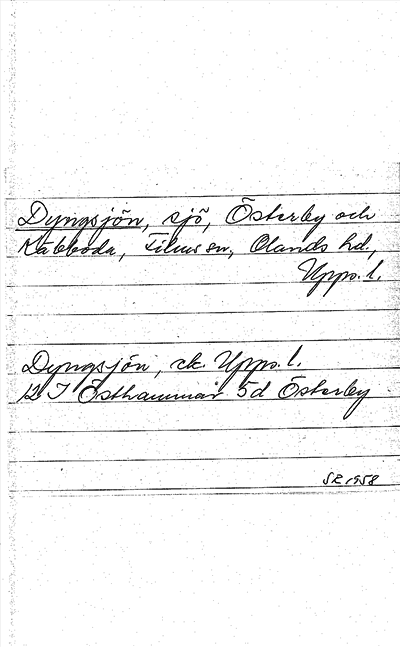 Dyngsjön, sjö, Österby och
Kabboda, Films sn, Olands hd.,
Upps. l.
Dyngsjön, ek. Upps. l.
12 I Östhammar 5d Österby
SR 1958